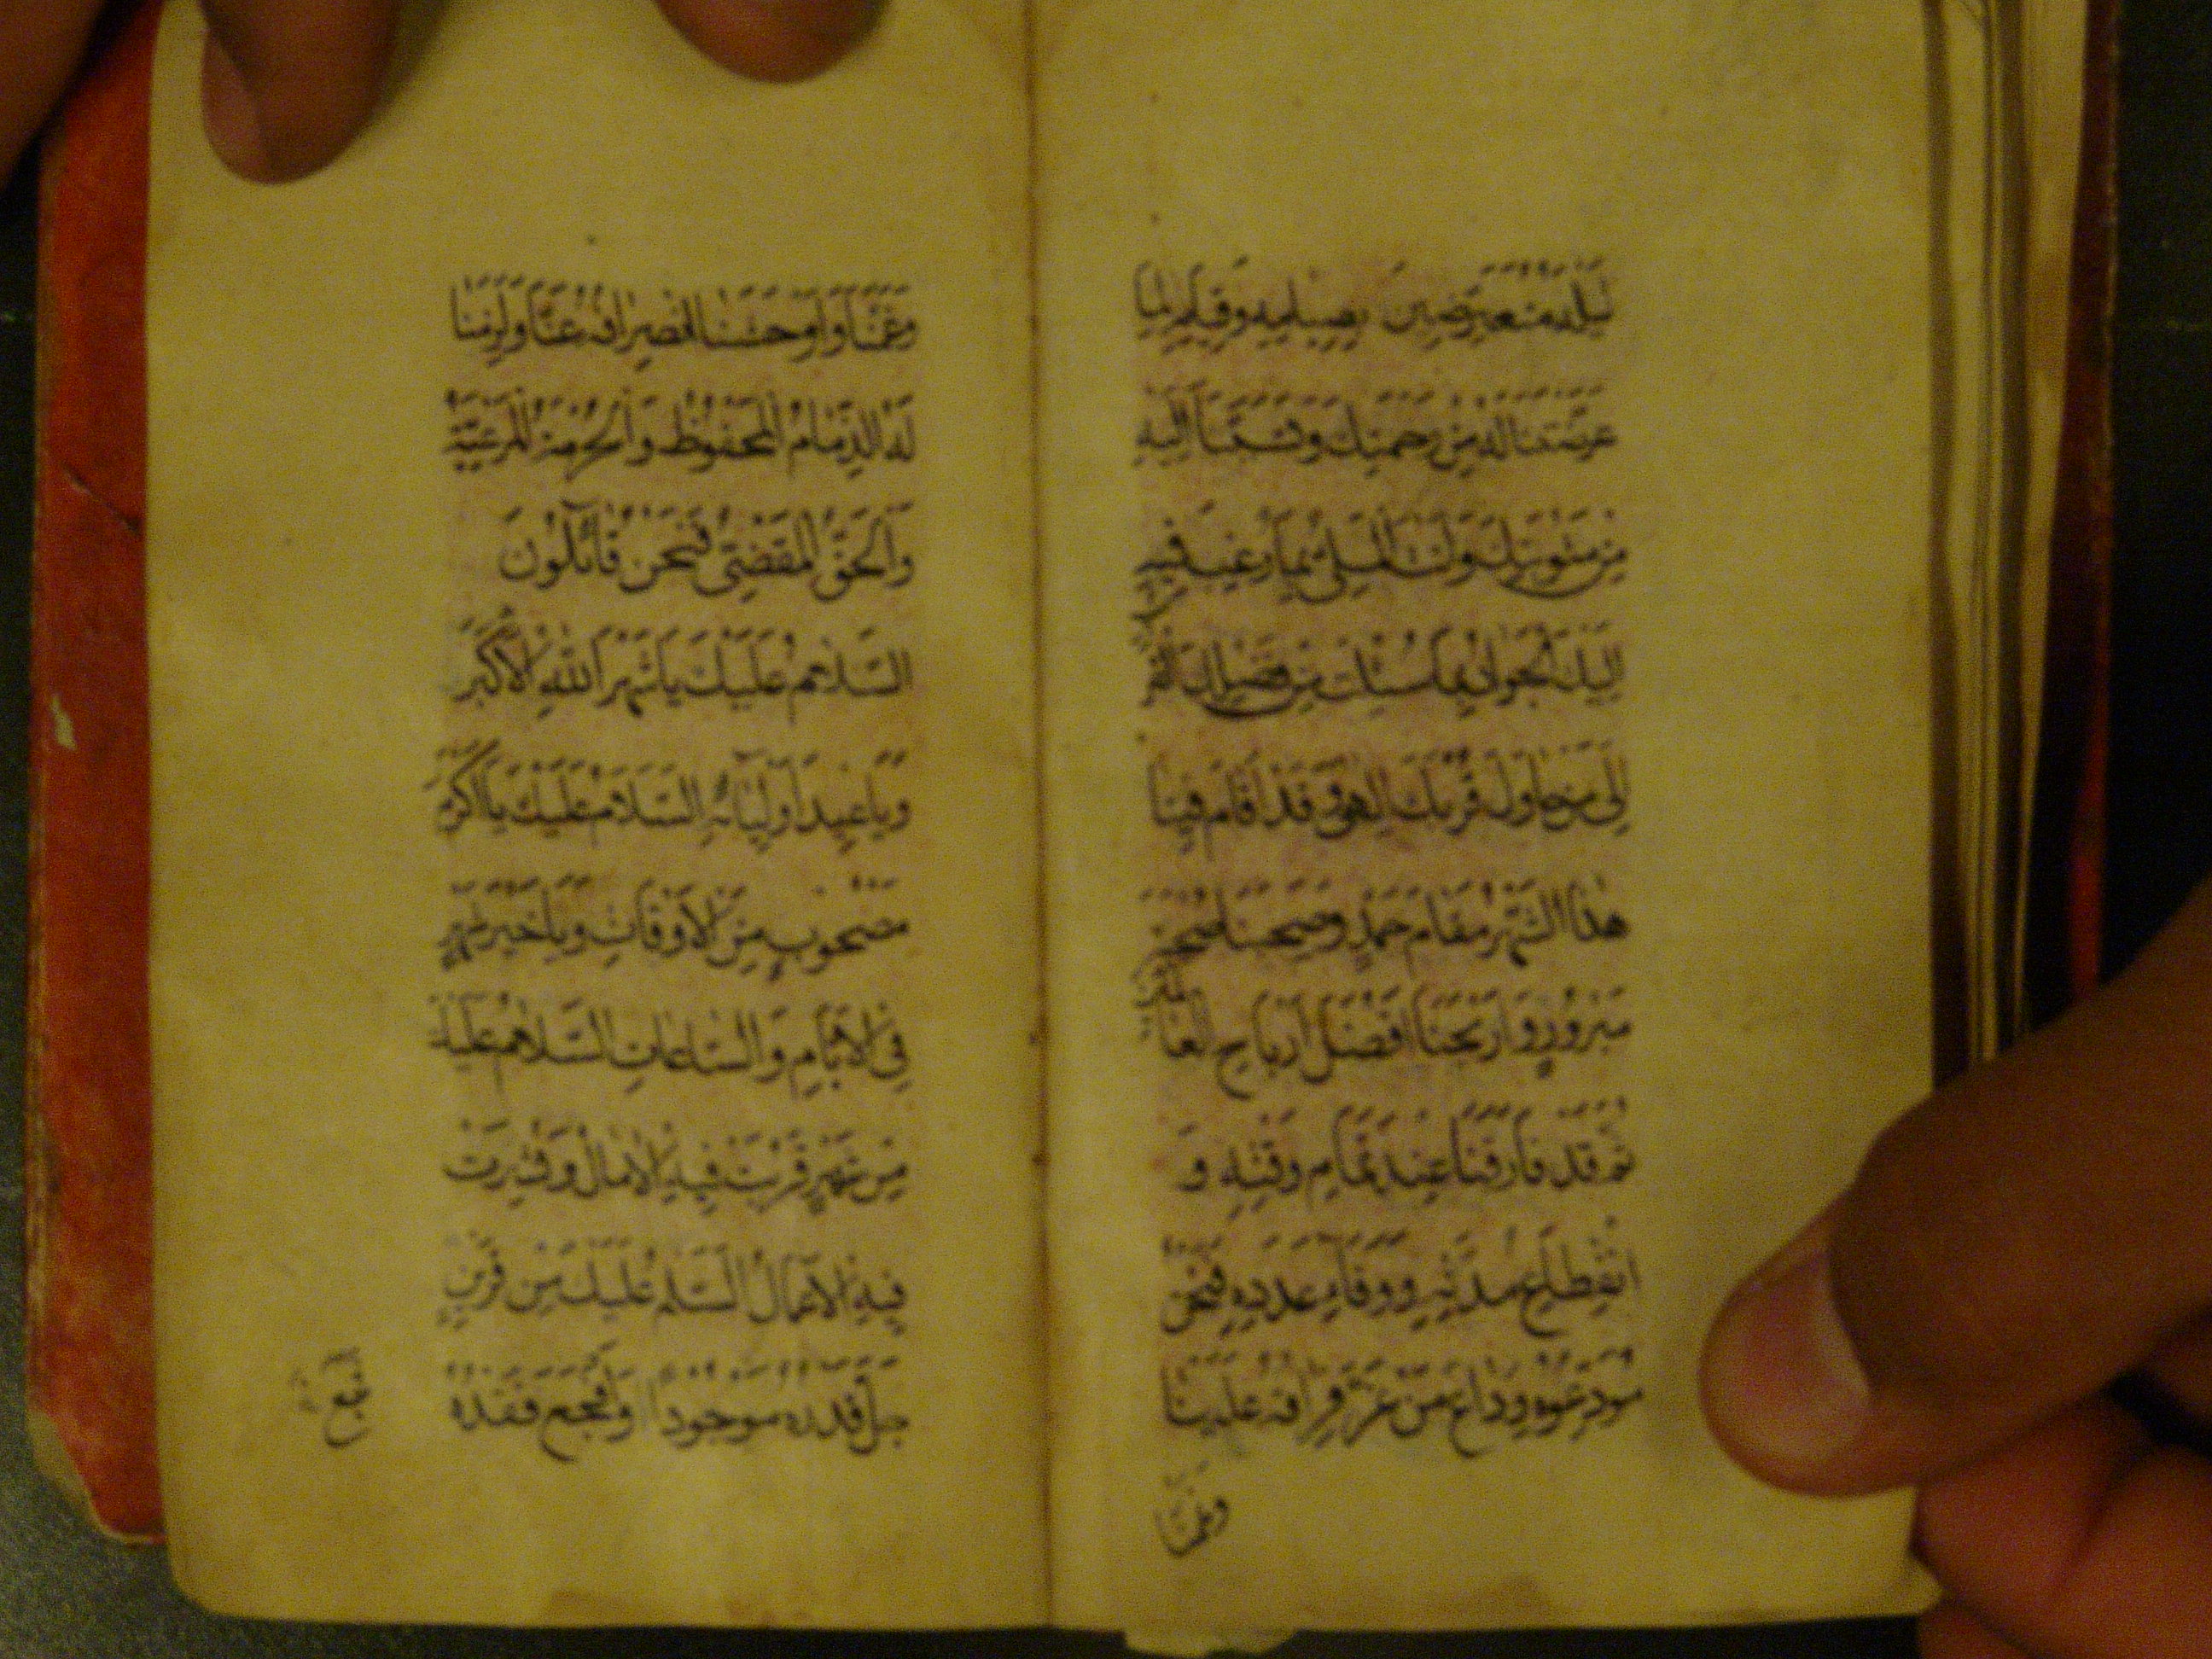 لَيْلَهُ مُتَعَرِّضِينَ بِصِيَامِهِ وَقِيَامِهِ لِمَا
عَرَّضْتَنَا لَهُ مِنْ رَحْمَتِكَ وَتَسَبَّبْنَا إِلَيْهِ
مِنْ مَثُوبَتِكَ وَأَنْتَ الْمَلِيُّ بِمَا رُغِبَ فِيهِ
إِلَيْكَ الْجَوَادُ بِمَا سُئِلْتَ مِنْ فَضْلِكَ الْقَرِيبُ
إِلَى مَنْ حَاوَلَ قُرْبَكَ اللهم وَقَدْ أَقَامَ فِينَا
هَذَا الشَّهْرُ مَقَامَ حَمْدٍ وَصَحِبَنَا صُحْبَةَ
مَبْرُورٍ وَأَرْبَحَنَا أَفْضَلَ أَرْبَاحِ الْعَالَمِينَ
ثُمَّ قَدْ فَارَقَنَا عِنْدَ تَمَامِ وَقْتِهِ وَ
انْقِطَاعِ مُدَّتِهِ وَوَفَاءِ عَدَدِهِ فَنَحْنُ
مُوَدِّعُوهُ وِدَاعَ مَنْ عَزَّ فِرَاقُهُ عَلَيْنَا
وَغَمَّنَا
وَغَمَّنَا وَأَوْحَشَنَا انْصِرَافُهُ عَنَّا وَلَزِمَنَا
لَهُ الذِّمَامُ الْمَحْفُوظُ وَالْحُرْمَةُ الْمَرْعِيَّةُ
وَالْحَقُّ الْمَقْضِيُّ فَنَحْنُ قَائِلُونَ
السَّلَامُ عَلَيْكَ يَا شَهْرَ اللهِ الْأَكْبَرَ
وَيَا عِيدَ أَوْلِيَائِهِ السَّلَامُ عَلَيْكَ يَا أَكْرَمَ
مَصْحُوبٍ مِنَ الْأَوْقَاتِ وَيَا خَيْرَ شَهْرٍ
فِي الْأَيَّامِ وَالسَّاعَاتِ السَّلَامُ عَلَيْكَ
مِنْ شَهْرٍ قَرُبَتْ فِيهِ الْآمَالُ وَنُشِرَتْ
فِيهِ الْأَعْمَالُ السَّلَامُ عَلَيْكَ مِنْ قَرِينٍ
جَلَّ قَدْرُهُ مَوْجُودًا وَأَفْجَعَ فَقْدُهُ